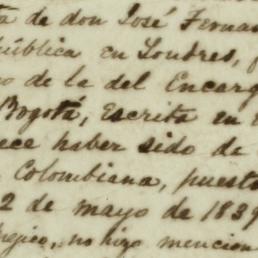 ta de don José Fernan
pública en Londres, f
o de la del Encarg
Bogotá, escrita en
ece haber sido de
Colombiana, puest
2 de mayo de 1839
Méjico, no hizo mencion